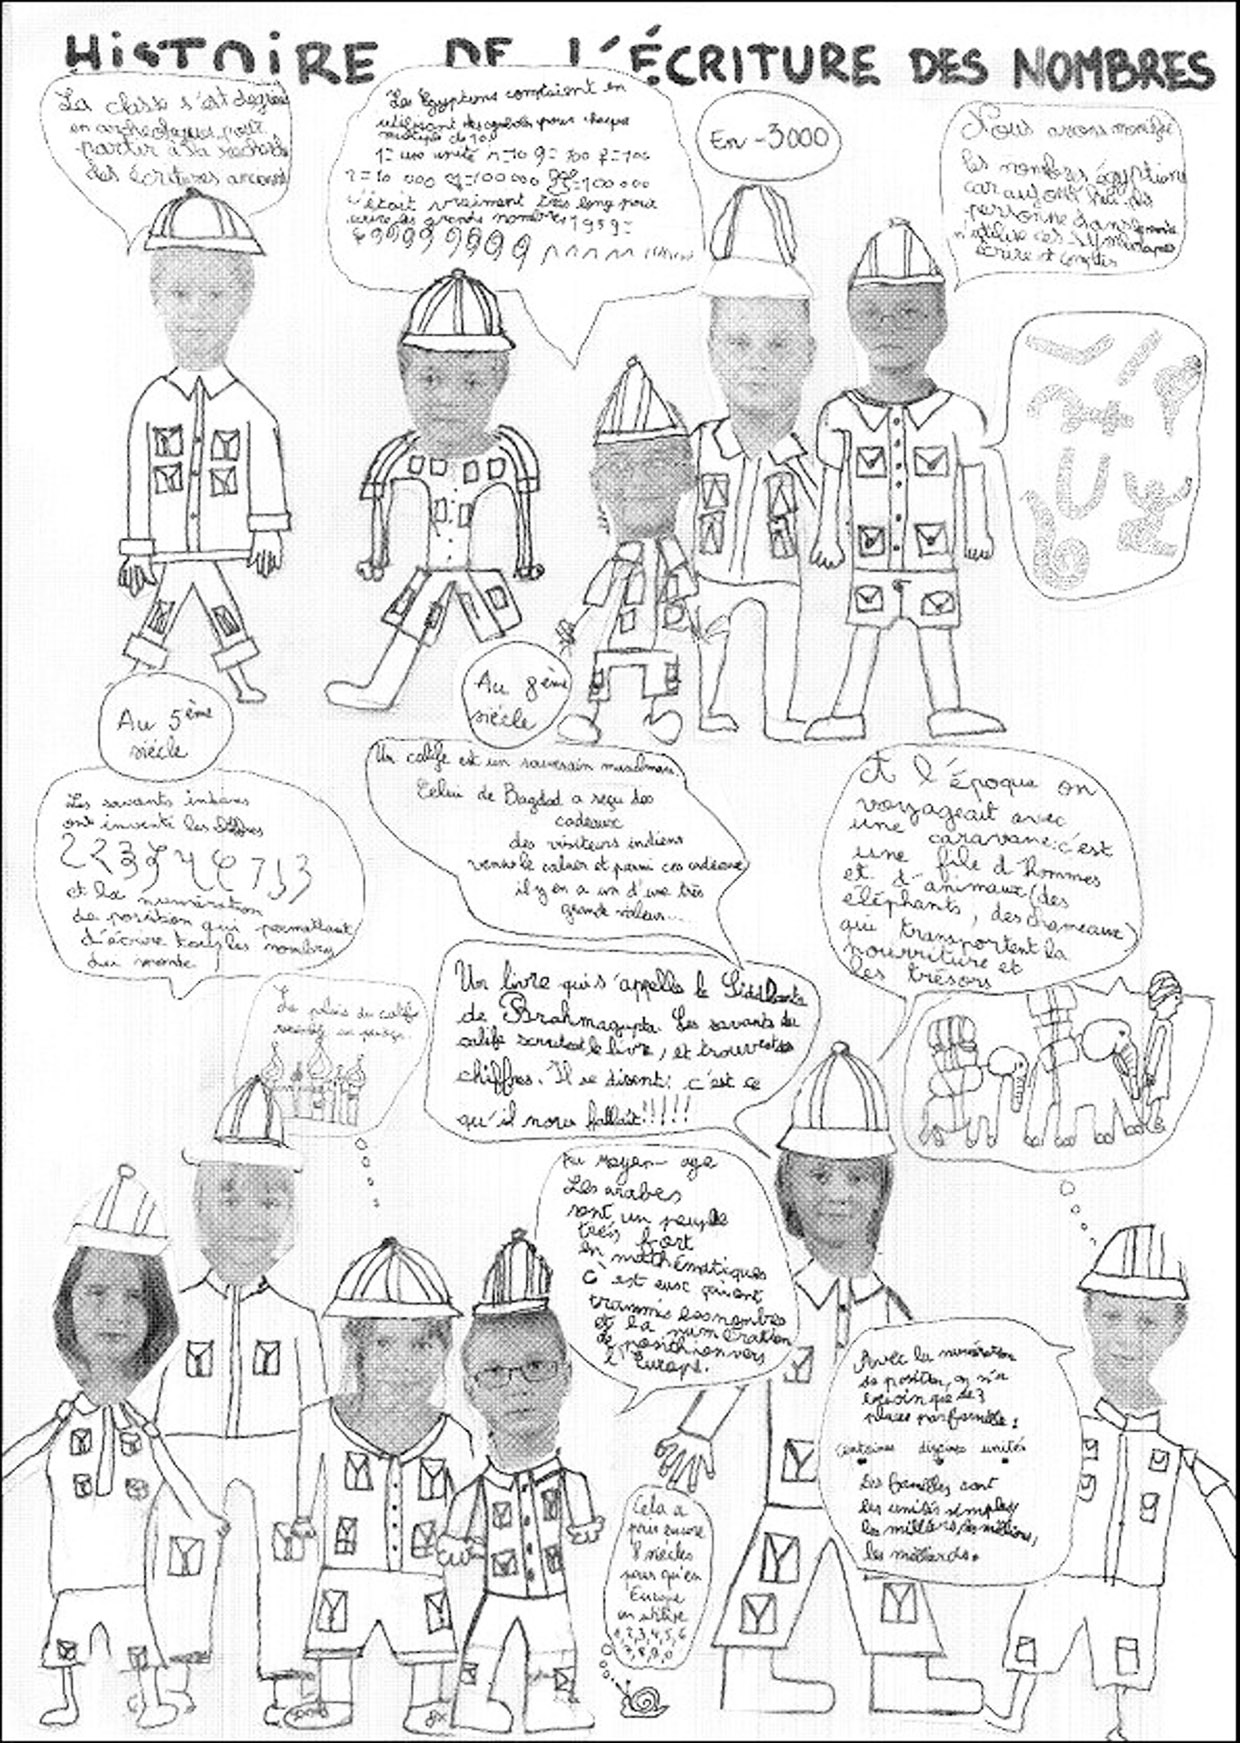 HISTOIRE DE L'ÉCRITURE DES NOMBRES
La classe s'est déguisé
en archéologues pour
partir à la recherche
des écritures anciennes
Les Egyptiens comptaient en
utilisant des symboles pour chaque
multiple de 10.
1 = une unité
c'était vraiment très long pour
écrire les grands nombres 1959 =
En -3000
Nous avons
les nombres égyptiens
car aujourd'hui
personne dans
n'utilise ces
écrire et compter
Au 5ème
siècle
Les savants indiens
ont inventé les chiffres
et la numération
de position qui permettait
d'écrire tous les nombres
du monde !
Au 8ème
siècle
Un calife est un souverain musulman.
Celui de Bagdad a reçu des
cadeaux
des visiteurs indiens
et parmi ces cadeaux
il y en a un d'une très
grande valeur...
A l'époque on
voyageait avec
une caravane: c'est
une file d'hommes
et d'animaux (des
éléphants, des chameaux)
qui transportent la
nourriture et
les trésors
Le palais du calife
Un livre qui s'appelle le Siddhanta
de Brahmagupta. Les savants du
calife le livre, et trouvent les
chiffres. Il se disent: c'est ce
qu'il nous fallait!!!!!
Au Moyen-age
Les arabes
sont un peuple
très fort
en mathématiques
C'est eux qui ont
transmis les nombres
et la numération
de position vers
l'Europe.
Avec la numération
de position, on n'a
besoin que de 3
places par famille :
centaines dizaines unités
Les familles sont
les unités simples,
les milliers, les millions,
les milliards.
Cela a
pris encore
8 siècles
pour qu'en
Europe
on utilise
1,2,3,4,5,6
7,8,9,0